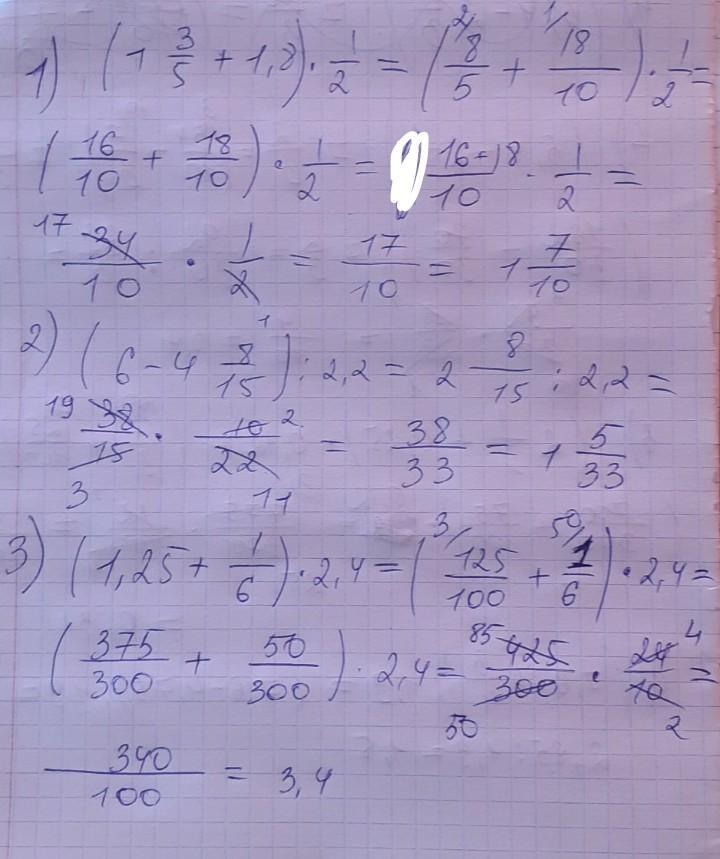 1) (1 3/5 + 1,8) · 1/2 = (²⁄ 8/5 + ¹⁄ 18/10) · 1/2 =
(16/10 + 18/10) · 1/2 = 16+18/10 · 1/2 =
17 34/10 · 1/2 = 17/10 = 1 7/10
2) (6 - 4 8/15) : 2,2 = 2 8/15 : 2,2 =
19 38/15 3 · 10/22 2 11 = 38/33 = 1 5/33
3) (1,25 + 1/6) · 2,4 = (³⁄ 125/100 + ⁵⁰⁄ 1/6) · 2,4 =
(375/300 + 50/300) · 2,4 = 85 425/300 50 · 24/10 4 2 =
340/100 = 3,4